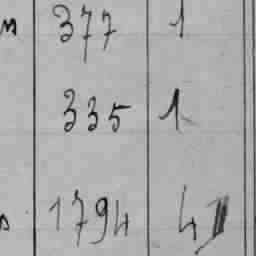 377 1
335 1
1794 4